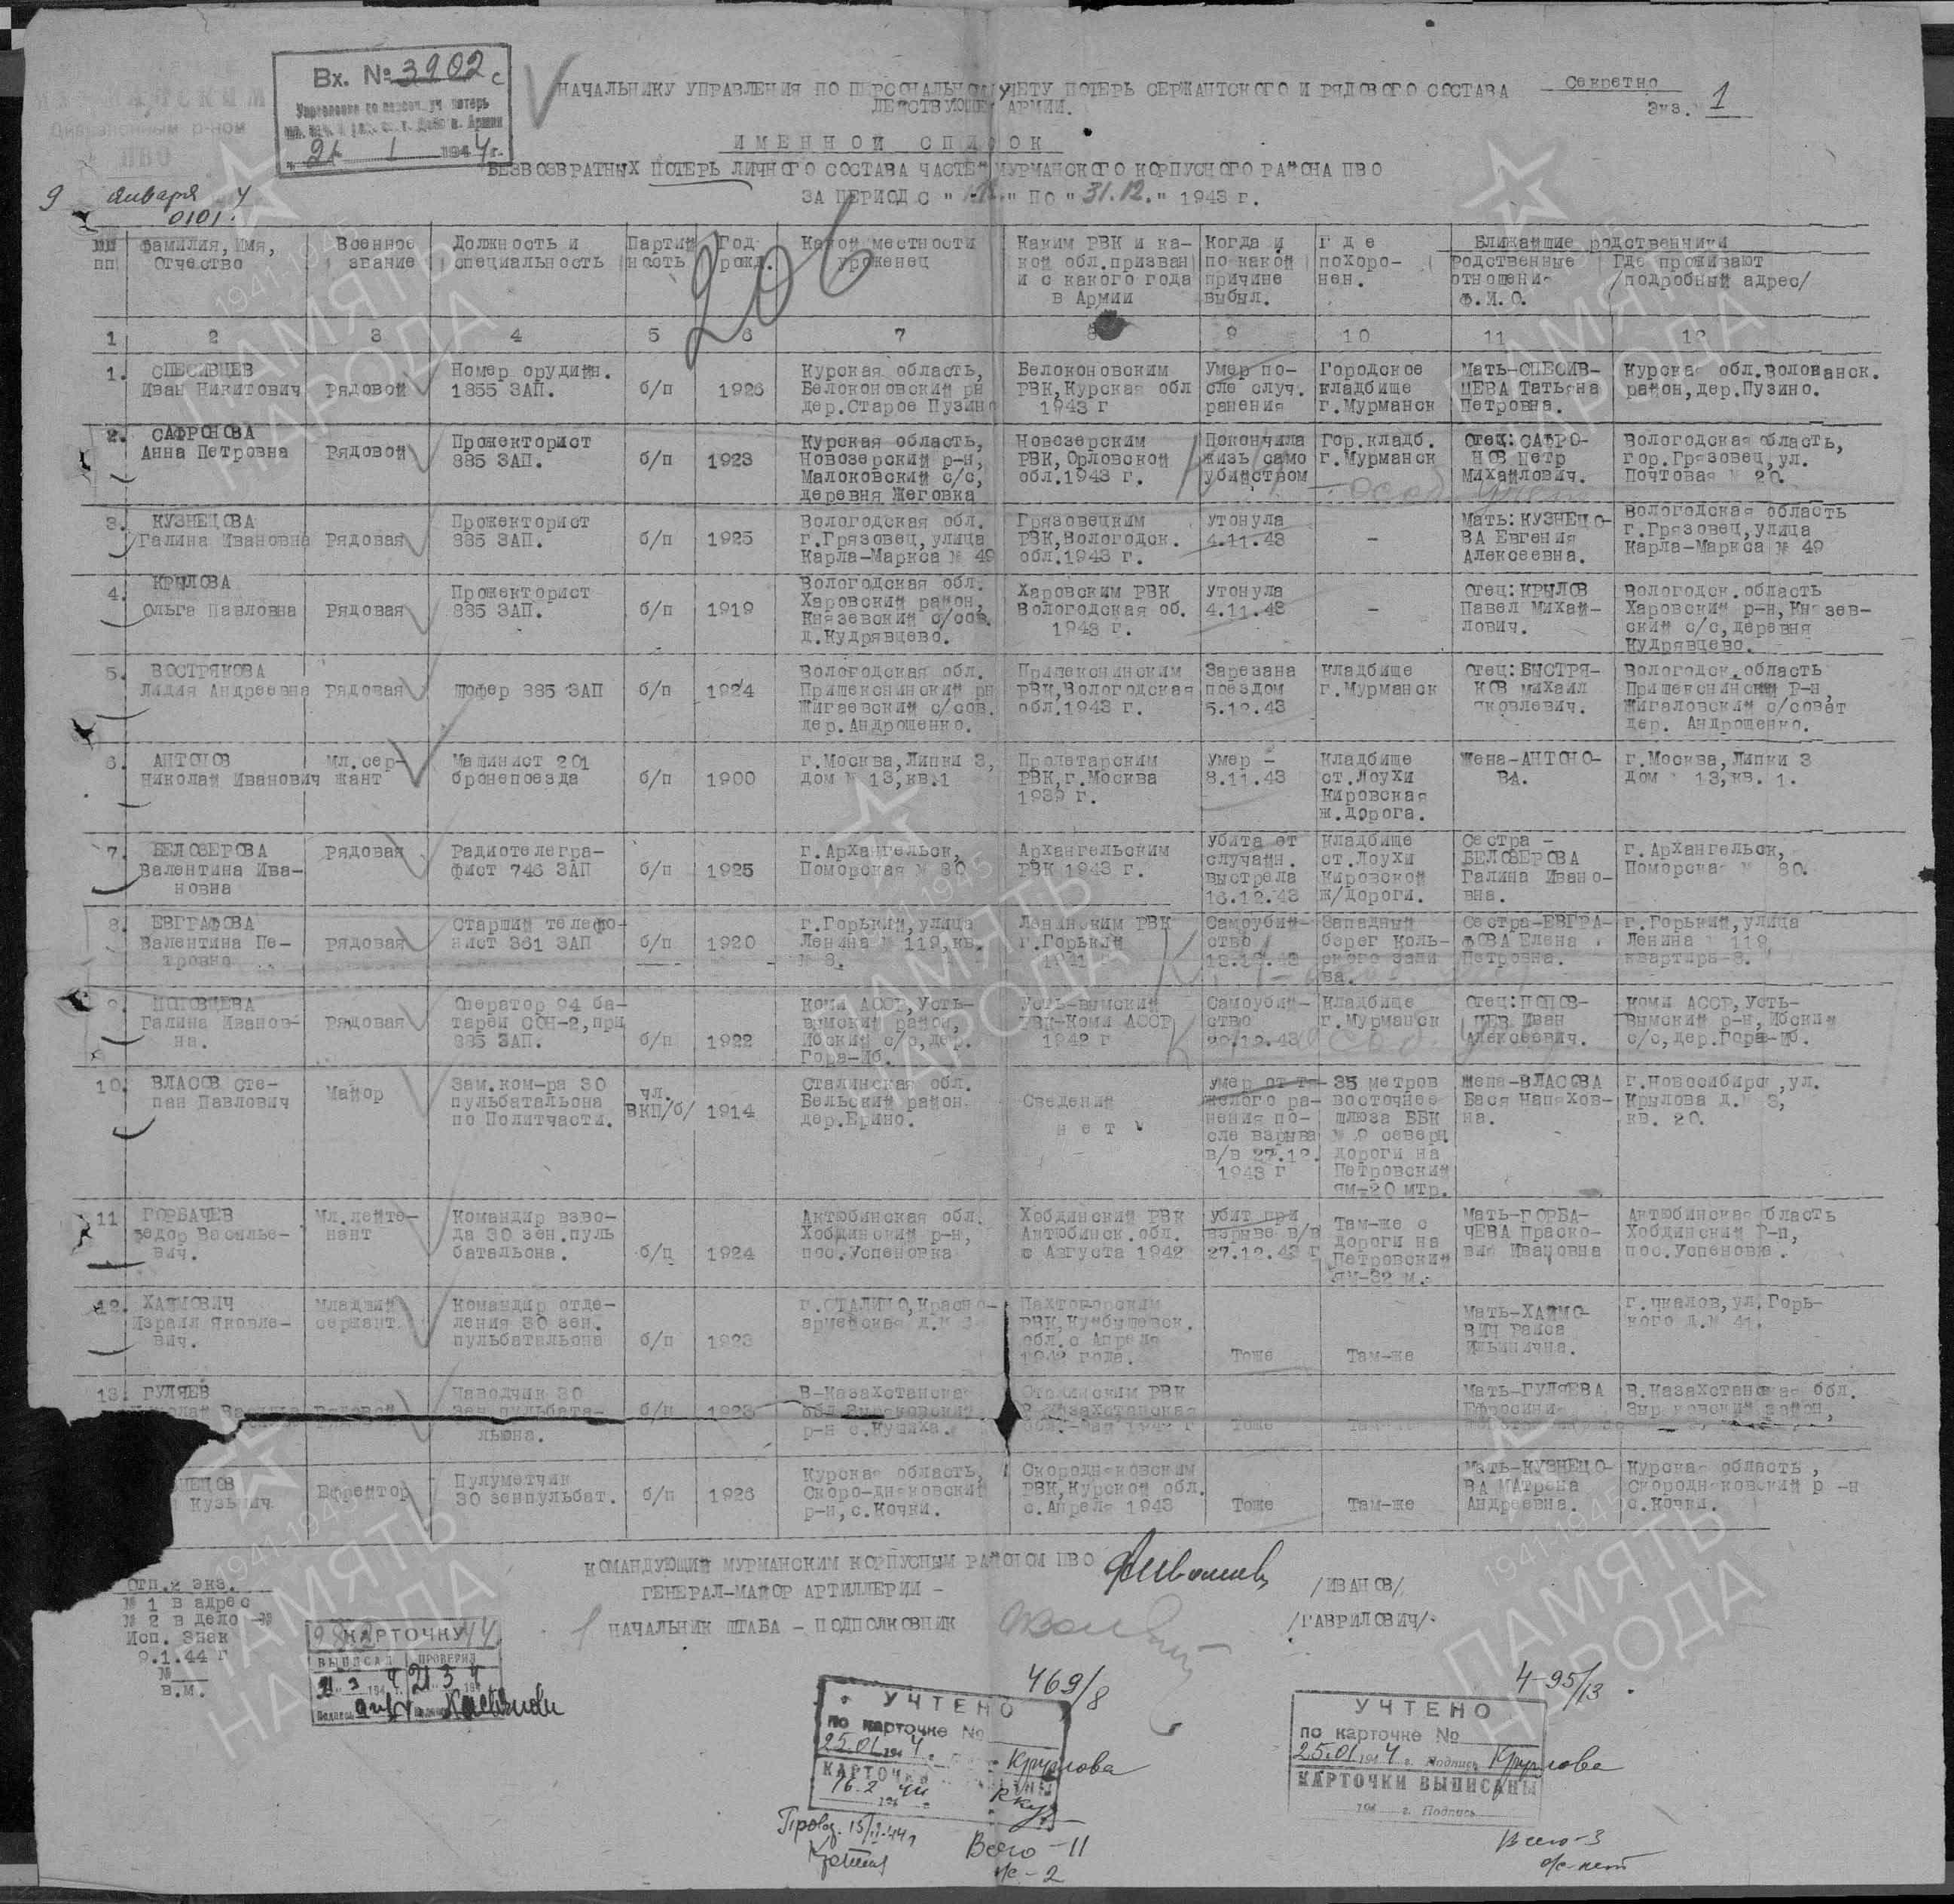 Вх. № 3902 с
Управление по персон. уч. потерь
"21" 1 1944 г.
Диризионным р-ном
ПВО
9 января 4
0101.
НАЧАЛЬНИКУ УПРАВЛЕНИЯ ПО ПЕРСОНАЛЬНОМУ УЧЕТУ ПОТЕРЬ СЕРЖАНТСКОГО И РЯДОВОГО СОСТАВА
ДЕЙСТВУЮЩЕЙ АРМИИ.
Секретно
Экз. 1
ИМЕННОЙ СПИСОК
БЕЗВОЗВРАТНЫХ ПОТЕРЬ ЛИЧНОГО СОСТАВА ЧАСТЕЙ МУРМАНСКОГО КОРПУСНОГО РАЙОНА ПВО
ЗА ПЕРИОД С " " ПО "31.12." 1943 г.
206
№№ пп
Фамилия, Имя, Отчество
Военное звание
Должность и специальность
Партийность
Год рожд.
Какой местности уроженец
Каким РВК и какой обл. призван и с какого года в Армии
Когда и по какой причине выбыл.
где похоронен.
Ближайшие родственники
Родственные отношения Ф.И.О.
Где проживают /подробный адрес/
1 2 3 4 5 6 7 8 9 10 11 12
1. СПЕСИВЦЕВ Иван Никитович
Рядовой
Номер орудийн. 1855 ЗАП.
б/п
1926
Курская область, Белоконовский рн дер.Старое Пузино
Белоконовским РВК,Курская обл 1943 г
Умер после случ. ранения
Городское кладбище г.Мурманск
Мать-СПЕСИВЦЕВА Татьяна Петровна.
Курская обл.Волонанск. район,дер.Пузино.
2. САФРОНОВА Анна Петровна
Рядовой
Прожекторист 885 ЗАП.
б/п
1923
Курская область, Новозерский р-н, Малоковский с/с, деревня Жеговка
Новозерским РВК,Орловской обл.1943 г.
Покончила жизь само убийством
Гор.кладб. г.Мурманск
Отец:САФРОНОВ Петр Михайлович.
Вологодская область, гор.Грязовец,ул. Почтовая № 20.
3. КУЗНЕЦОВА Галина Ивановна
Рядовая
Прожекторист 885 ЗАП.
б/п
1925
Вологодская обл. г.Грязовец,улица Карла-Маркса № 49
Грязовецким РВК,Вологодск. обл.1943 г.
утонула 4.11.43
-
Мать:КУЗНЕЦОВА Евгения Алексеевна.
Вологодская область г.Грязовец,улица Карла-Маркса № 49
4. КРЫЛОВА Ольга Павловна
Рядовая
Прожекторист 885 ЗАП.
б/п
1919
Вологодская обл. Харовский район, Князевский с/сов. д.Кудрявцево.
Харовским РВК Вологодская об. 1943 г.
утонула 4.11.43
-
Отец:КРЫЛОВ Павел Михайлович.
Вологодск.область Харовский р-н,Князевский с/с,деревня Кудрявцево.
5. ВОСТРЯКОВА Лидия Андреевна
рядовая
Шофер 885 ЗАП
б/п
1924
Вологодская обл. Пришекснинский рн Жигаевский с/сов. дер.Андрошенко.
Пришекснинским РВК,Вологодская обл.1943 г.
Зарезана поездом 5.12.43
кладбище г.Мурманск
Отец:БЫСТРЯКОВ михаил яковлевич.
Вологодск.область Пришекснинский Р-н, Жигаловский с/совет дер. Андрошенко.
6. АНТОНОВ Николай Иванович
Мл.сержант
Машинист 201 бронепоезда
б/п
1900
г.Москва,Липки 3, дом № 13,кв.1
Пролетарским РВК,г.Москва 1939 г.
Умер - 8.11.43
Кладбище ст.Лоухи Кировская ж.дорога.
Жена-АНТОНОВА.
г.Москва,Липки 3 дом 13,кв. 1.
7. БЕЛОЗЕРОВА Валентина Ивановна
рядовая
Радиотелеграфист 746 ЗАП
б/п
1925
г.Архангельск, Поморская № 80
Архангельским РВК 1943 г.
убита от случайн. выстрела 16.12.43
кладбище ст.Лоухи Кировской ж/дороги.
Сестра - БЕЛОЗЕРОВА Галина Ивановна.
г.Архангельск, Поморская № 80.
8. ЕВГРАФОВА Валентина Петровна
рядовая
Старший телефонист 361 ЗАП
б/п
1920
г.Горький,улица Ленина № 119,кв. № 8.
Ленинским РВК г.Горький 1941
Самоубийство
Западный берег Кольского залива.
Сестра-ЕВГРАФОВА Елена Петровна.
г.Горький,улица Ленина № 119, квартира-8.
9. ПОПОВЦЕВА Галина Ивановна.
рядовая
Оператор 94 батареи СОН-2,при 885 ЗАП.
б/п
1922
Коми АССР,Усть-вымский район, Ибский с/с,дер. Гора-Иб.
Усть-вымский РВК-Коми АССР 1942 г
Самоубийство 29.12.43
Кладбище г.Мурманск
Отец:ПОПОВЦЕВ Иван Алексеевич.
Коми АССР,Усть-Вымский р-н,Ибский с/с,дер.Гора-Иб.
10. ВЛАСОВ Степан Павлович
Майор
Зам.ком-ра 30 пульбатальона по Политчасти.
чл. ВКП/б/
1914
Сталинская обл. Бельский район. дер.Ерино.
Сведений нет
умер от тяжелого ранения после взрыва в/в 27.12. 1943 г
35 метров восточнее шлюза ББК № 9 северн. дороги на Петровский ям-20 мтр.
Жена-ВЛАСОВА Бася Напяховна.
г.Новосибирск,ул. Крылова д.№ 3, кв. 20.
11 ГОРБАЧЕВ Федор Васильевич.
Мл.лейтенант
Командир взвода 30 зен.пуль батальона.
б/п
1924
Актюбинская обл. Хобдинский р-н, пос.Успеновка
Хобдинский РВК Актюбинск.обл. с Августа 1942
убит при взрыве в/в 27.12.43 г
Там-же с дороги на Петровский ям-32 м.
Мать-ГОРБАЧЕВА Прасковия Ивановна
Актюбинская область Хобдинский Р-п, пос.Успеновка.
12. ХАЙМОВИЧ Израил Яковлевич.
Младший сержант
Командир отделения 30 зен. пульбатальона
б/п
1923
г.СТАЛИНО,Красноармейская д.№ 3
Пахтогорским РВК,Куйбышевск. обл.с Апреля 1942 года.
Тоже
Там-же
Мать-ХАЙМОВИЧ Раиса Ильинична.
г.Чкалов,ул.Горького д.№ 41.
13. ГУЛЯЕВ
рядовой
Наводчик 30 зен.пульбатальона.
б/п
1923
В-Казахстанская обл.Зыряновский р-н с.Кушиха.
РВК
Тоже
Мать-ГУЛЯЕВА Ефросиния
В.Казахстанская обл. Зыряновский район,
НЕЦОВ Кузьмич
Ефрейтор
Пулуметчик 30 зенпульбат.
б/п
1926
Курская область, Скоро-дняковский р-н,с.Кочки.
Скородняковским РВК,Курской обл. с.Апреля 1943
Тоже
Там-же
Мать-КУЗНЕЦОВА Матрена Андреевна.
Курская область, Скородняковский р-н с.Кочки.
КОМАНДУЮЩИЙ МУРМАНСКИМ КОРПУСНЫМ РАЙОНОМ ПВО
ГЕНЕРАЛ-МАЙОР АРТИЛЛЕРИИ -
/ИВАНОВ/
НАЧАЛЬНИК ШТАБА - ПОДПОЛКОВНИК
/ГАВРИЛОВИЧ/
Отп.2 экз.
№ 1 в адрес
№ 2 в дело
Исп. Знак
9.1.44 г
№
в.м.
КАРТОЧКУ
ВЫПИСАЛ ПРОВЕРИЛ
21 3 4 21 3 4
469/8
УЧТЕНО
по карточке №
25.01.1944 г. Круглова
КАРТОЧКИ ВЫПИСАНЫ
16.2 44
Всего-11
о/с-2
4-95/13
УЧТЕНО
по карточке №
25.01 1944 г. Подпись Круглова
КАРТОЧКИ ВЫПИСАНЫ
194 г. Подпись
Всего-3
о/с-нет
1941-1945
ПАМЯТЬ
НАРОДА